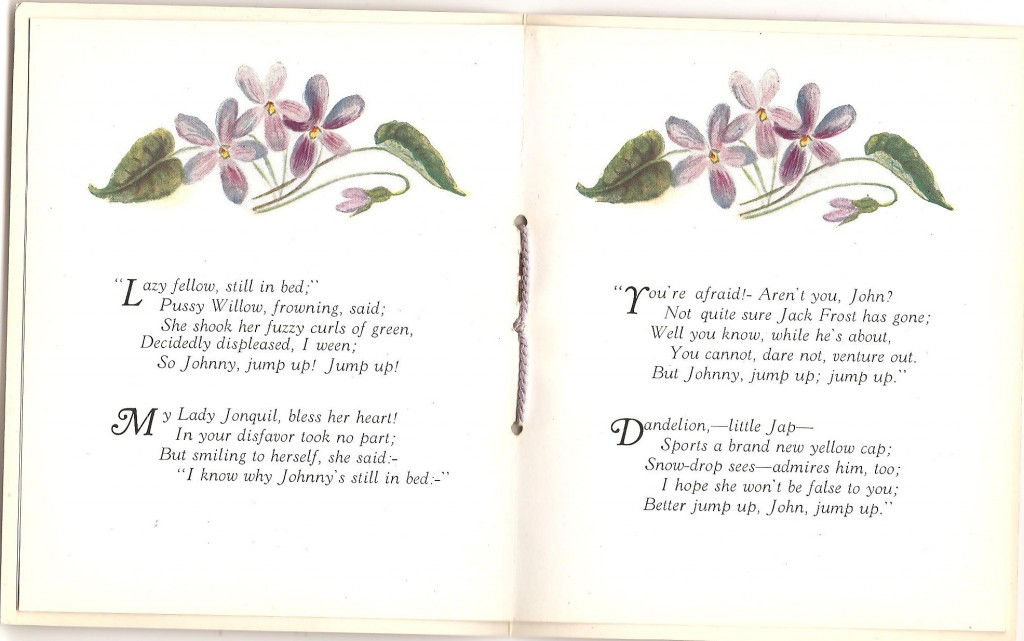 "Lazy fellow, still in bed;"
Pussy Willow, frowning, said;
She shook her fuzzy curls of green,
Decidedly displeased, I ween;
So Johnny, jump up! Jump up!
My Lady Jonquil, bless her heart!
In your disfavor took no part;
But smiling to herself, she said:-
"I know why Johnny's still in bed:-"
"You're afraid!- Aren't you, John?
Not quite sure Jack Frost has gone;
Well you know, while he's about,
You cannot, dare not, venture out.
But Johnny, jump up; jump up."
Dandelion,—little Jap—
Sports a brand new yellow cap;
Snow-drop sees—admires him, too;
I hope she won't be false to you;
Better jump up, John, jump up."